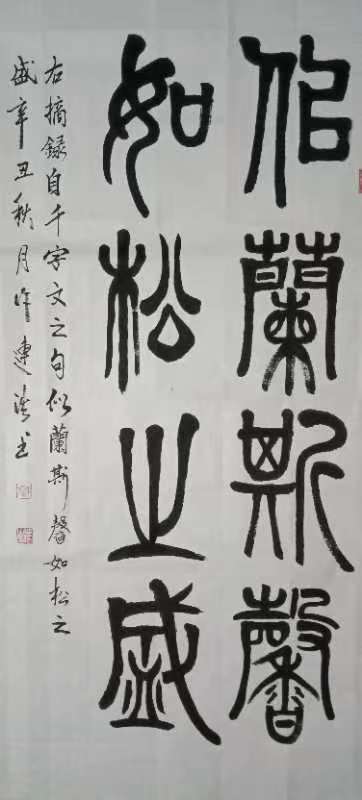 佀蘭斯馨
如松之盛
右摘録自千字文之句似蘭斯馨如松之
盛辛丑秋月作連洪书